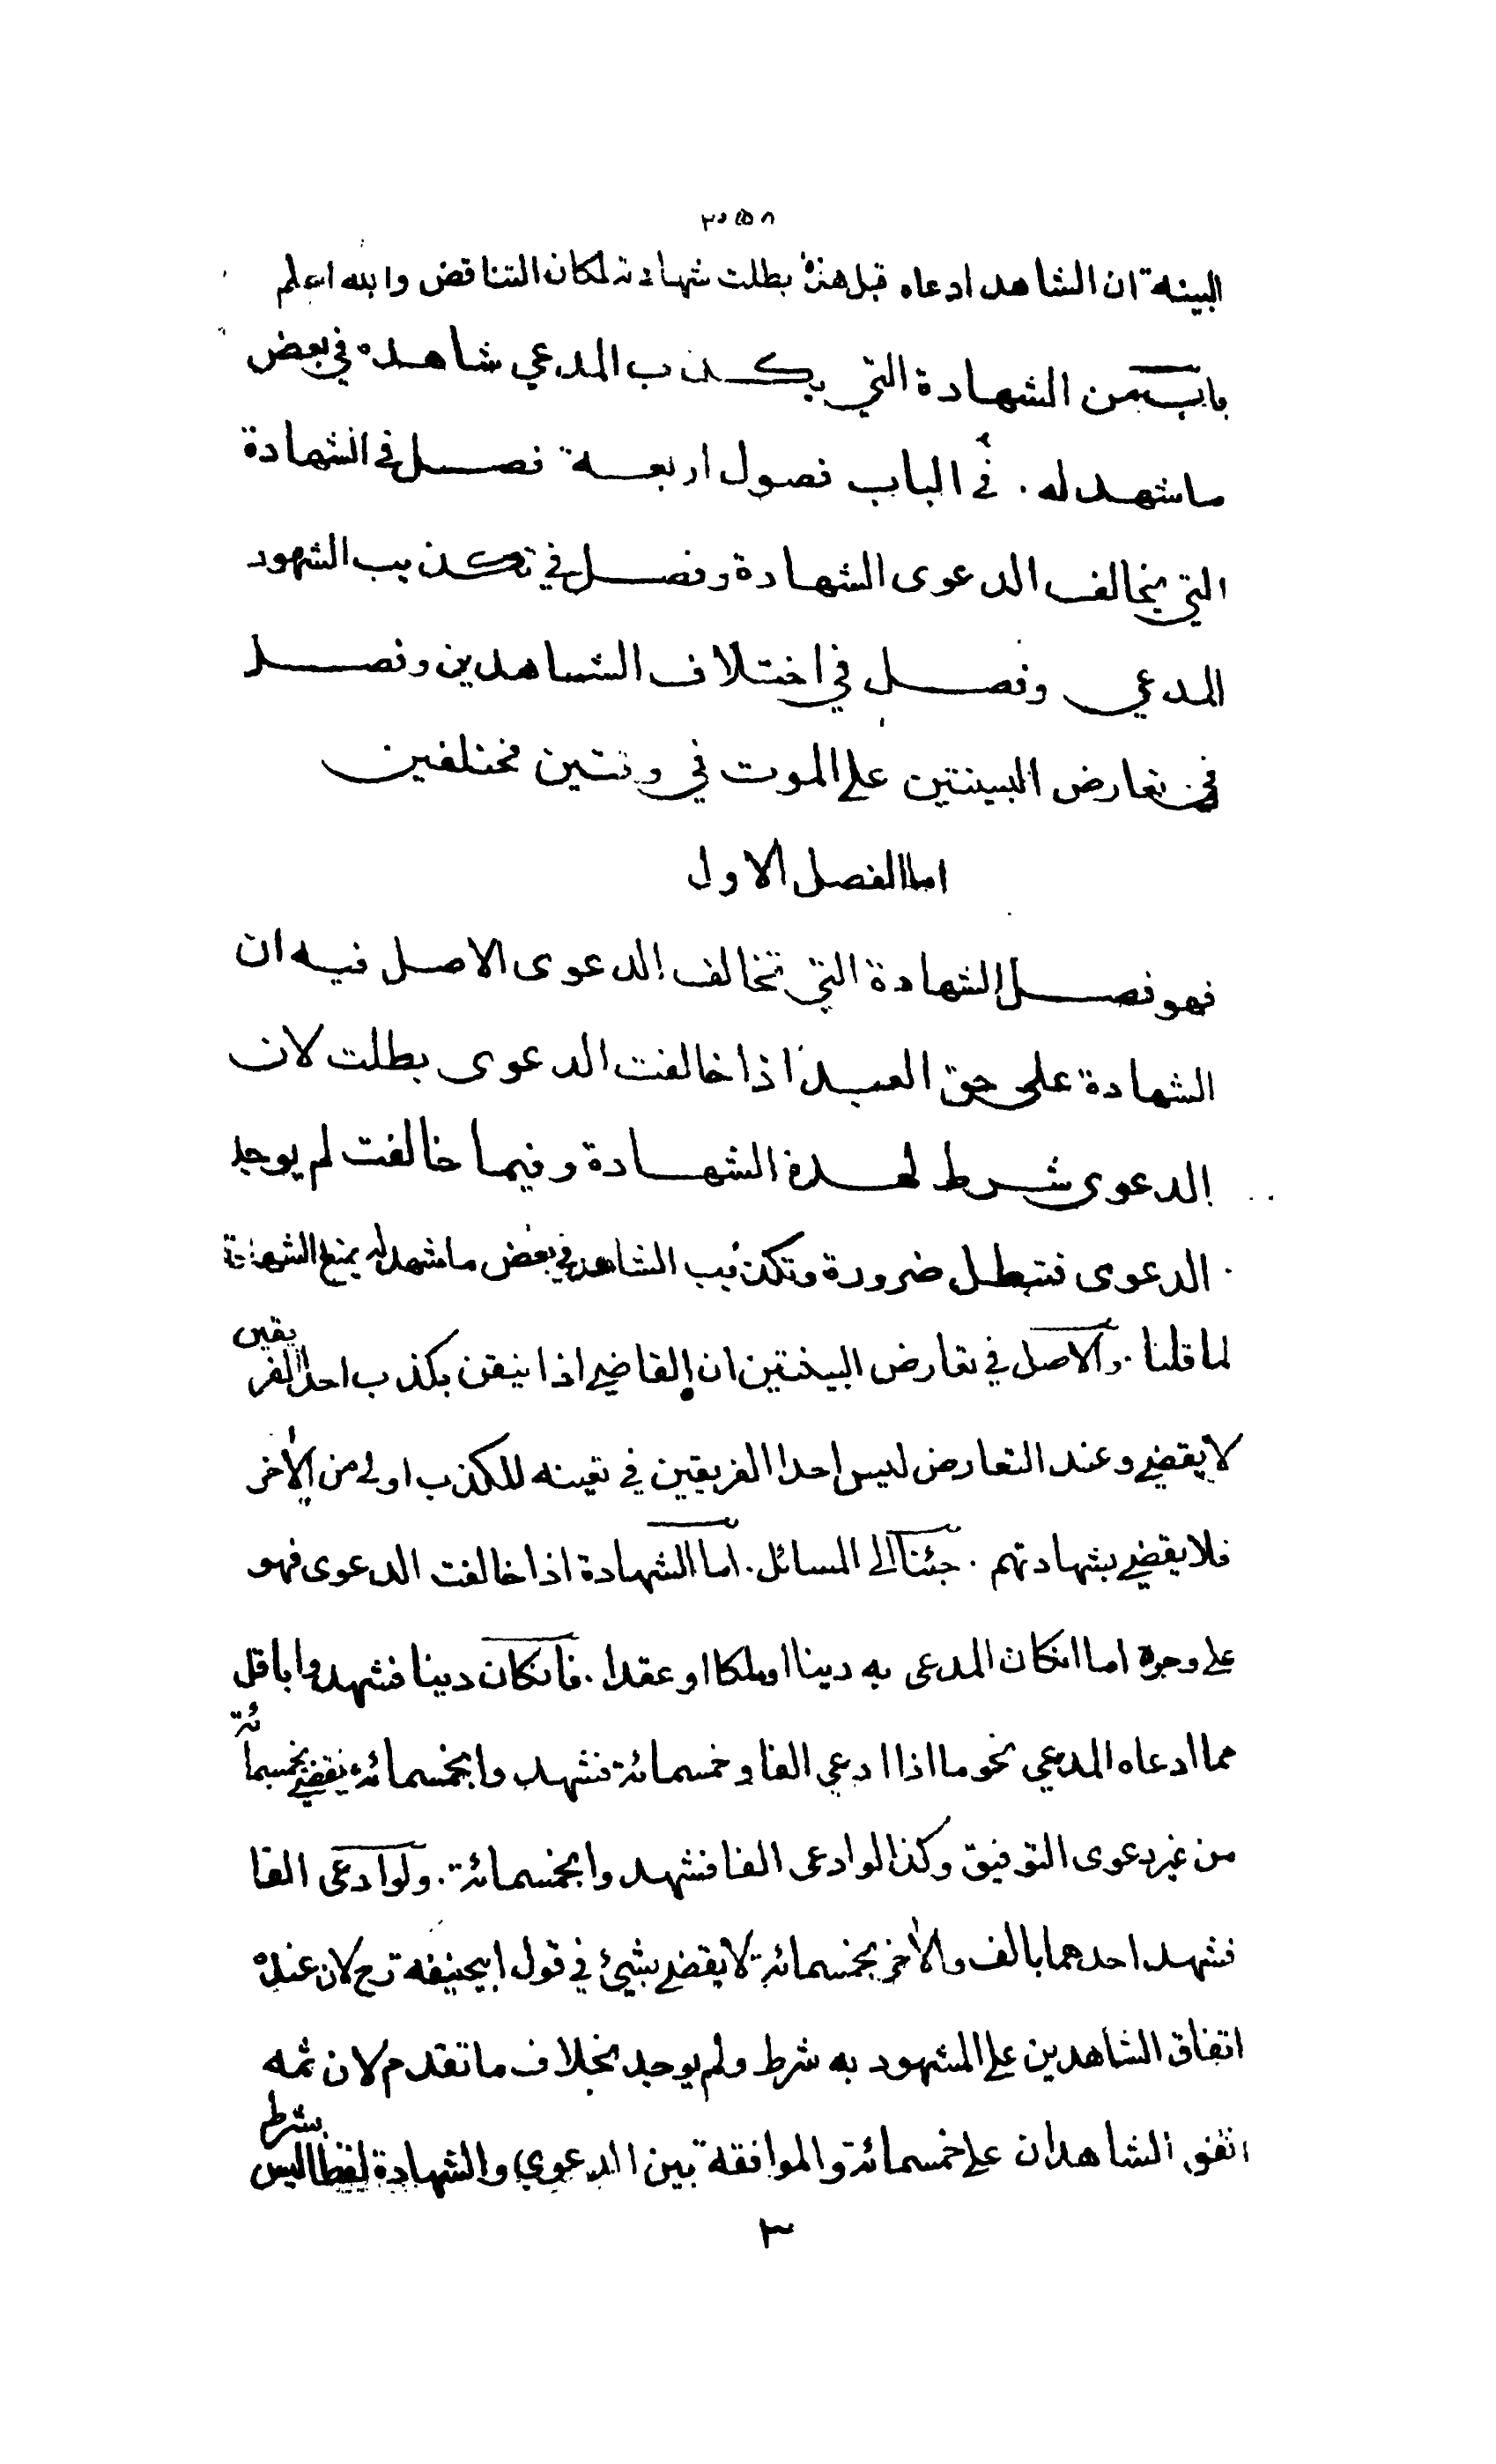 البينة ان الشاهد ادعاه قبل هذه بطلت شهادته لمكان التناقض والله اعلم
باب من الشهادة التي يكذب المدعي شاهده في بعض
ما شهد له . في الباب فصول اربعة فصل في الشهادة
التي يخالف الدعوى الشهادة وفصل في تكذيب الشهود
المدعي وفصل في اختلاف الشاهدين وفصل
في تعارض البينتين على الموت في وقتين مختلفين
اما الفصل الاول
فهو فصل الشهادة التي تخالف الدعوى الاصل فيه ان
الشهادة على حق العبد اذا خالفت الدعوى بطلت لان
الدعوى شرط لهذه الشهادة وفيما خالفت لم يوجد
الدعوى فتبطل ضرورة وتكذيب الشاهد في بعض ما شهد له يمنع الشهادة
لما قلنا . والاصل في تعارض البينتين ان القاضي اذا تيقن بكذب احد الفريقين
لا يقضي وعند التعارض ليس احد الفريقين في تعينه للكذب اولى من الاخر
فلا يقضي بشهادتهم . جئنا الى المسائل . اما الشهادة اذا خالفت الدعوى فهو
على وجوه اما انكان المدعى به دينا او ملكا او عقدا . فانكان دينا فشهدوا باقل
مما ادعاه المدعي نحو ما اذا ادعي الفا وخمسمائة فشهدوا بخمسمائة يقضي بخمسمائة
من غير دعوى التوفيق وكذا لو ادعى الفا فشهدوا بخمسمائة . ولو ادعى الفا
فشهد احدهما بالف والاخر بخمسمائة لا يقضي بشيئ في قول ابيحنيفه رح لان عنده
اتفاق الشاهدين على المشهود به شرط ولم يوجد بخلاف ما تقدم لان ثمه
اتفق الشاهدان على خمسمائة والموافقة بين الدعوي والشهادة لفظا ليس بشرط
٣